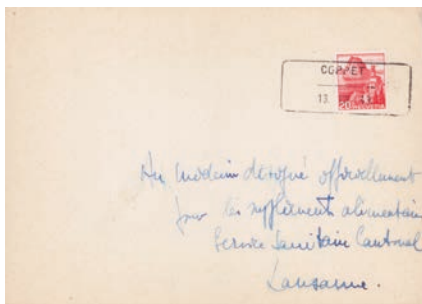 COPPET
13.
20 HELVETIA
Au médecin désigné officiellement
pour les suppléments alimentaires
Service Sanitaire Cantonal
Lausanne.